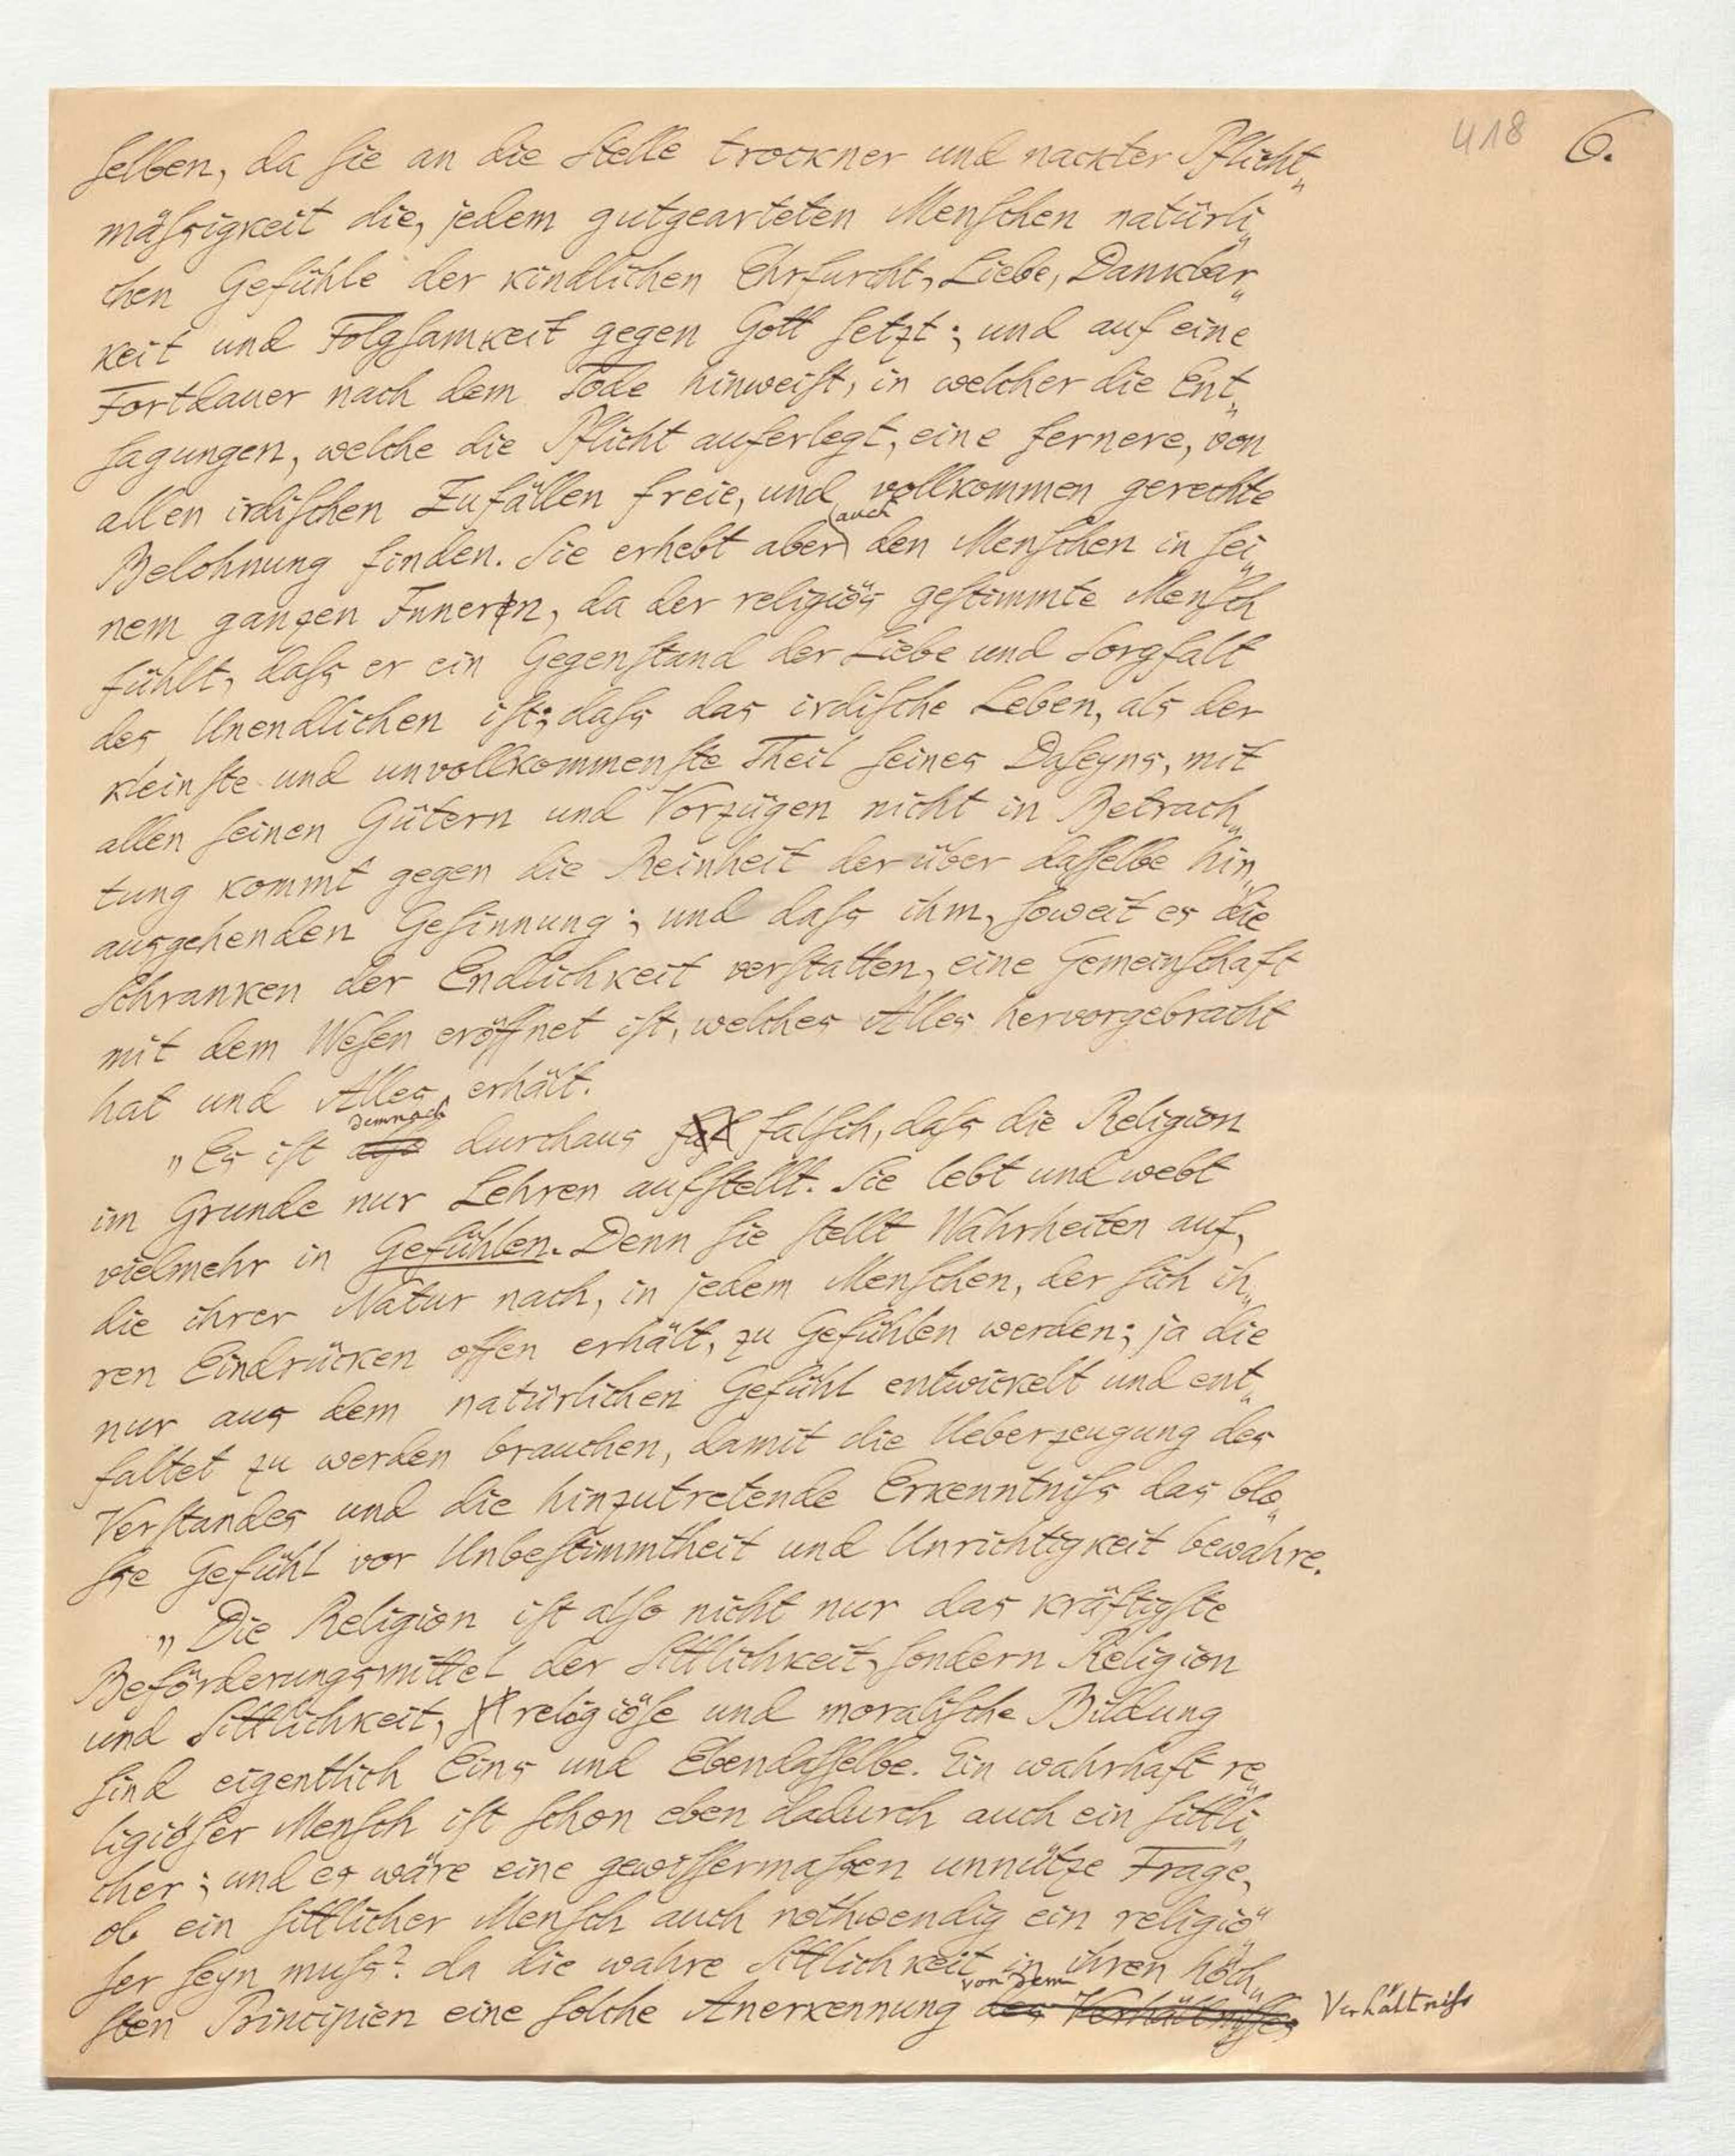 418 6.
selben, da sie an die Stelle trockner und nackter Pflicht„
mäßsigkeit die, jedem gutgearteten Menschen natürli„
chen Gefühle der kindlichen Ehrfurcht, Liebe, Dankbar„
keit und Folgsamkeit gegen Gott setzt; und auf eine
Fortdauer nach dem Tode hinweist, in welcher die Ent„
sagungen, welche die Pflicht auferlegt, eine fernere, von
allen irdischen Zufällen freie, und vollkommen gerechte
Belohnung finden. Sie erhebt aber auch den Menschen in sei„
nem ganzen Innern, da der religiös gestimmte Mensch
fühlt, dass er ein Gegenstand der Liebe und Sorgfalt
des Unendlichen ist; dass das irdische Leben, als der
kleinste und unvollkommenste Theil seines Daseyns, mit
allen seinen Gütern und Vorzügen nicht in Betrach„
tung kommt gegen die Reinheit der über dasselbe hin„
ausgehenden Gesinnung; und dass ihm, soweit es die
Schranken der Endlichkeit verstatten, eine Gemeinschaft
mit dem Wesen eröffnet ist, welches Alles hervorgebracht
hat und Alles erhält.
„Es ist demnach durchaus falsch, dass die Religion
im Grunde nur Lehren aufstellt. Sie lebt und webt
vielmehr in Gefühlen. Denn sie stellt Wahrheiten auf,
die ihrer Natur nach, in jedem Menschen, der sich ih„
ren Eindrücken offen erhält, zu Gefühlen werden; ja die
nur aus dem natürlichen Gefühl entwickelt und ent„
faltet zu werden brauchen, damit die Ueberzeugung des
Verstandes und die hinzutretende Erkenntniss das blo„
sse Gefühl vor Unbestimmtheit und Unrichtigkeit bewahre.
„Die Religion ist also nicht nur das kräftigste
Beförderungsmittel der Sittlichkeit, sondern Religion
und Sittlichkeit, religiöse und moralische Bildung
sind eigentlich Eins und Ebendasselbe. Ein wahrhaft re„
ligiöser Mensch ist schon eben dadurch auch ein sittli„
cher; und es wäre eine gewissermassen unnütze Frage,
ob ein sittlicher Mensch auch nothwendig ein religiö„
ser seyn muss? da die wahre Sittlichkeit in ihren höch„
sten Principien eine solche Anerkennung von dem des Verhältnisses Verhältniss